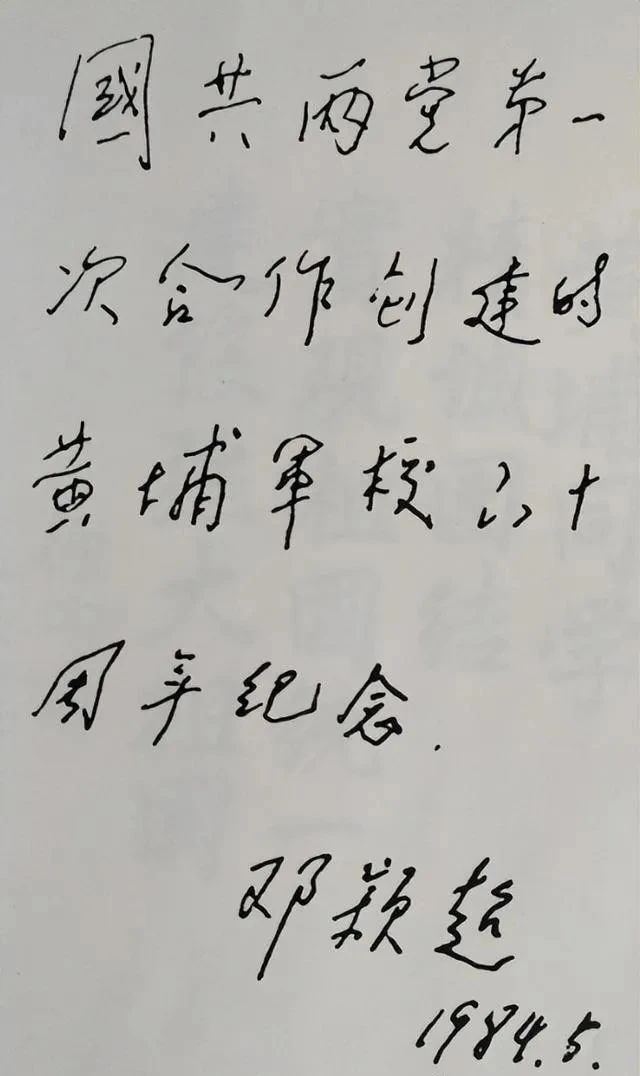 國共两党第一
次合作创建时
黄埔軍校六十
周年纪念.
邓颖超
1984.5.